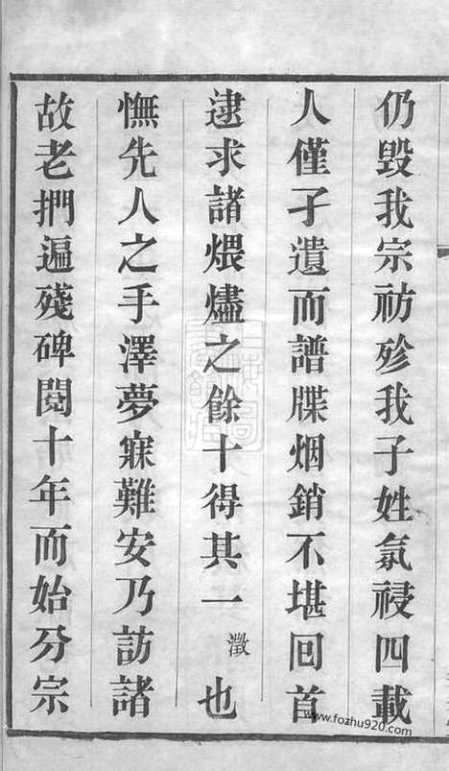 仍毀我宗祊殄我子姓氛祲四載
人僅孑遺而譜牒烟銷不堪回首
逮求諸煨燼之餘十得其一澂也
憮先人之手澤夢寐難安乃訪諸
故老捫遍殘碑閱十年而始分宗
www.fozhu920.com